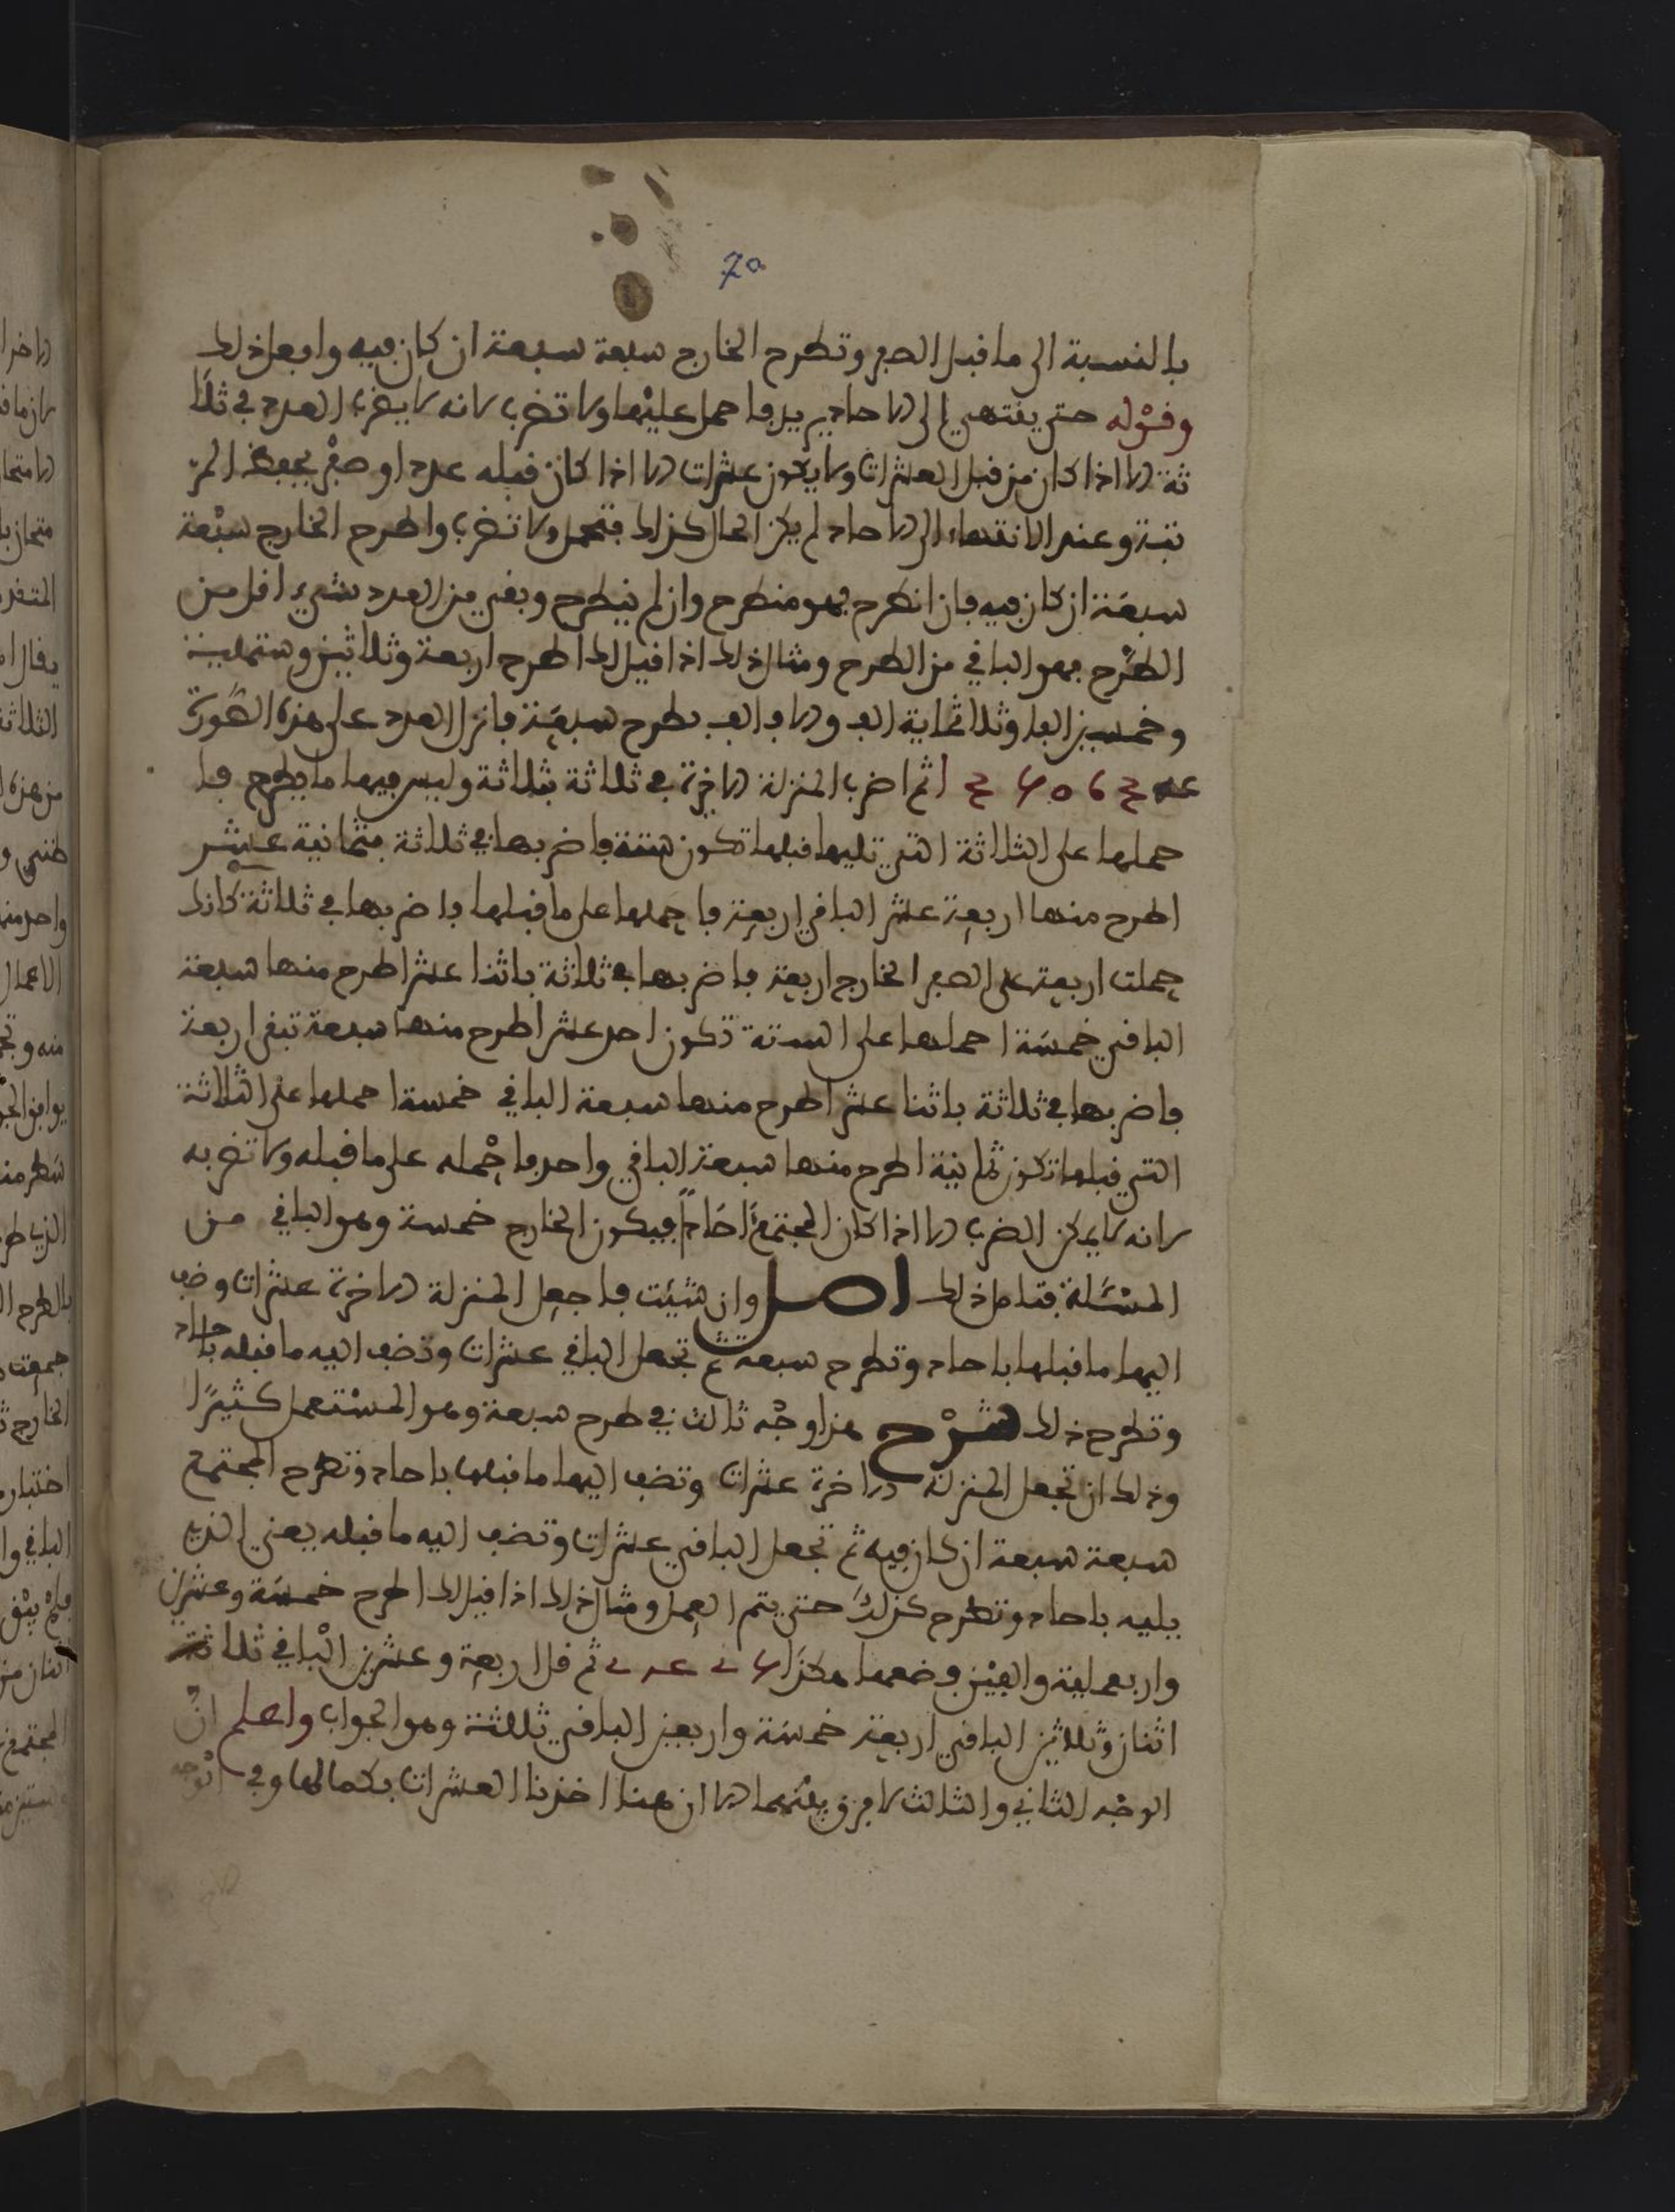 70
بالنسبة الى ما قبل الصفر وتطرح الخارج سبعة سبعة ان كان فيه وافعل ذلك
وقوله حتى ينتهي الى الاحاد يريد فاحمل عليها ولا تضرب لانه لا يضرب العدد في ثلا
ثة الا اذا كان من قبل العشرات ولا يكون عشرات الا اذا كان قبله عدد او صفر يحفظ المر
تبة وعند الانتهاء الى الاحاد لم يكن الحال كذلك فتحمل ولا تضرب واطرح الخارج سبعة
سبعة ان كان فيه فان انطرح فهو منطرح وان لم ينطرح وبقي من العدد شيء اقل من
الطرح فهو الباقي من الطرح ومثال ذلك اذا قيل لك اطرح اربعة وثلاثين وستماية
وخمسين الفا وثلاثماية الف والاف الف بطرح سبعة فانزل العدد على هذه الصورة
ثم اضرب المنزلة الاخيرة في ثلاثة بثلاثة وليس فيها ما يطرح فا
حملها على الثلاثة التي تليها قبلها تكون ستة فاضربها في ثلاثة بثمانية عشر
اطرح منها اربعة عشر الباقي اربعة فاحملها على ما قبلها فاضربها في ثلاثة كانك
حملت اربعة على الصفر الخارج اربعة فاضربها في ثلاثة باثنا عشر اطرح منها سبعة
الباقي خمسة احملها على الستة تكون احد عشر اطرح منها سبعة تبقى اربعة
فاضربها في ثلاثة باثنا عشر اطرح منها سبعة الباقي خمسة احملها على الثلاثة
التي قبلها تكون ثمانية اطرح منها سبعة الباقي واحد فاحمله على ما قبله ولا تضربه
لانه لا يمكن الضرب الا اذا كان المجتمع احادا فيكون الخارج خمسة وهو الباقي من
المسئلة فتامل ذلك اصل وان شئت فاجعل المنزلة الاخرة عشرات وضف
اليها ما قبلها باحاد وتطرح سبعة ثم تجعل الباقي عشرات وتضف اليه ما قبله باحاد
وتطرح ذلك شرح هذا وجه ثالث في طرح سبعة وهو المستعمل كثيرا
وذلك ان تجعل المنزلة الاخرة عشرات وتضف اليها ما قبلها باحاد وتطرح المجتمع
سبعة سبعة ان كان فيه ثم تجعل الباقي عشرات وتضف اليه ما قبله يعني الذي
يليه باحاد وتطرح كذلك حتى يتم العمل ومثال ذلك اذا قيل لك اطرح خمسة وعشرين
واربعماية والفين وضعها هكذا ثم قل اربعة وعشرين الباقي ثلاثة
اثنان وثلاثين الباقي اربعة خمسة واربعين الباقي ثلاثة وهو الجواب واعلم ان
الوجه الثاني والثالث لا فرق بينهما الا ان هنا اخذنا العشرات بكمالها وفي الوجه